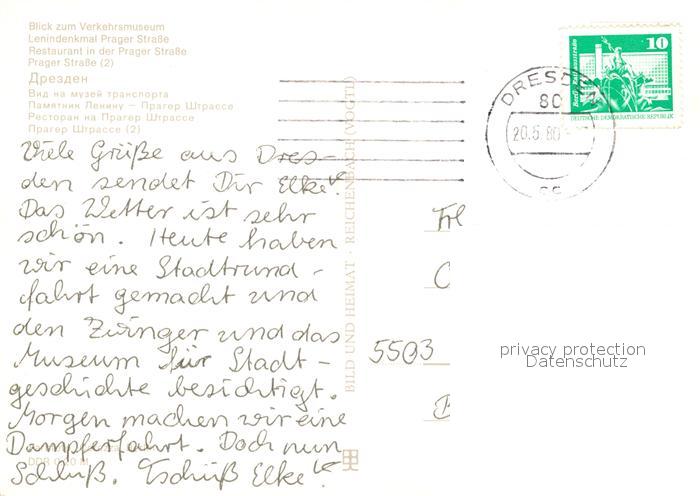 Blick zum Verkehrsmuseum
Lenindenkmal Prager Straße
Restaurant in der Prager Straße
Prager Straße (2)
Дрезден
Вид на музей транспорта
Памятник Ленину – Прагер Штрассе
Ресторан на Прагер Штрассе
Прагер Штрассе (2)
Viele Grüße aus Dres-
den sendet Dir Elke!
Das Wetter ist sehr
schön. Heute haben
wir eine Stadtrund-
fahrt gemacht und
den Zwinger und das
Museum für Stadt-
geschichte besichtigt.
Morgen machen wir eine
Dampferfahrt. Doch nun
Schluß. Tschüß Elke!
BILD UND HEIMAT · REICHENBACH (VOGTL)
10
DEUTSCHE DEMOKRATISCHE REPUBLIK
DRESDEN
80
20.5.80
5503
privacy protection
Datenschutz